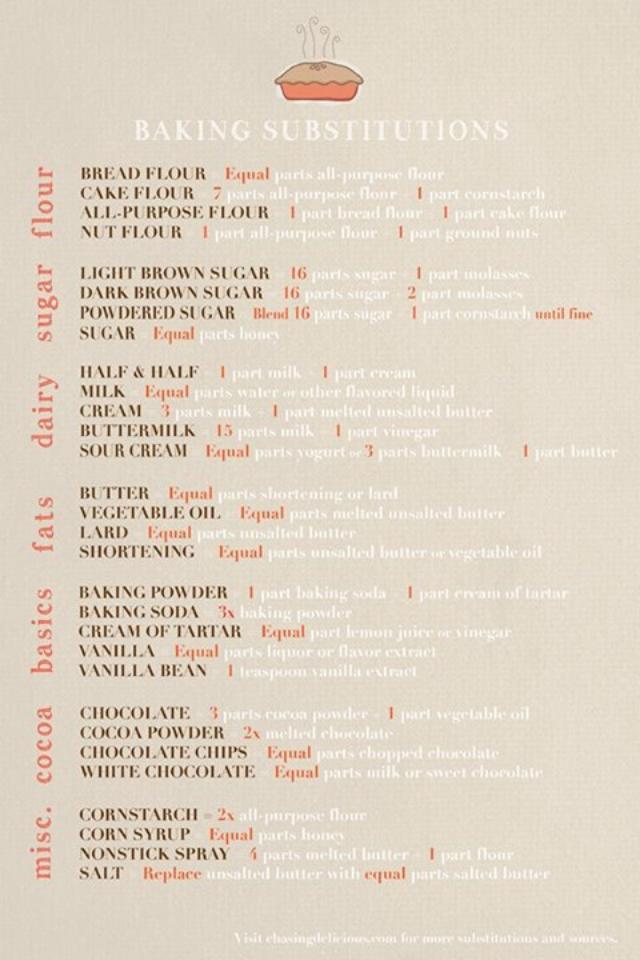 BAKING SUBSTITUTIONS
flour
BREAD FLOUR = Equal parts all-purpose flour
CAKE FLOUR = 7 parts all-purpose flour + 1 part cornstarch
ALL-PURPOSE FLOUR = 1 part bread flour + 1 part cake flour
NUT FLOUR = 1 part all-purpose flour + 1 part ground nuts
sugar
LIGHT BROWN SUGAR = 16 parts sugar + 1 part molasses
DARK BROWN SUGAR = 16 parts sugar + 2 part molasses
POWDERED SUGAR = Blend 16 parts sugar + 1 part cornstarch until fine
SUGAR = Equal parts honey
dairy
HALF & HALF = 1 part milk + 1 part cream
MILK = Equal parts water or other flavored liquid
CREAM = 3 parts milk + 1 part melted unsalted butter
BUTTERMILK = 15 parts milk + 1 part vinegar
SOUR CREAM = Equal parts yogurt or 3 parts buttermilk + 1 part butter
fats
BUTTER = Equal parts shortening or lard
VEGETABLE OIL = Equal parts melted unsalted butter
LARD = Equal parts unsalted butter
SHORTENING = Equal parts unsalted butter or vegetable oil
basics
BAKING POWDER = 1 part baking soda + 1 part cream of tartar
BAKING SODA = 3x baking powder
CREAM OF TARTAR = Equal part lemon juice or vinegar
VANILLA = Equal parts liquor or flavor extract
VANILLA BEAN = 1 teaspoon vanilla extract
cocoa
CHOCOLATE = 3 parts cocoa powder + 1 part vegetable oil
COCOA POWDER = 2x melted chocolate
CHOCOLATE CHIPS = Equal parts chopped chocolate
WHITE CHOCOLATE = Equal parts milk or sweet chocolate
misc.
CORNSTARCH = 2x all-purpose flour
CORN SYRUP = Equal parts honey
NONSTICK SPRAY = 4 parts melted butter + 1 part flour
SALT = Replace unsalted butter with equal parts salted butter
Visit chasingdelicious.com for more substitutions and sources.